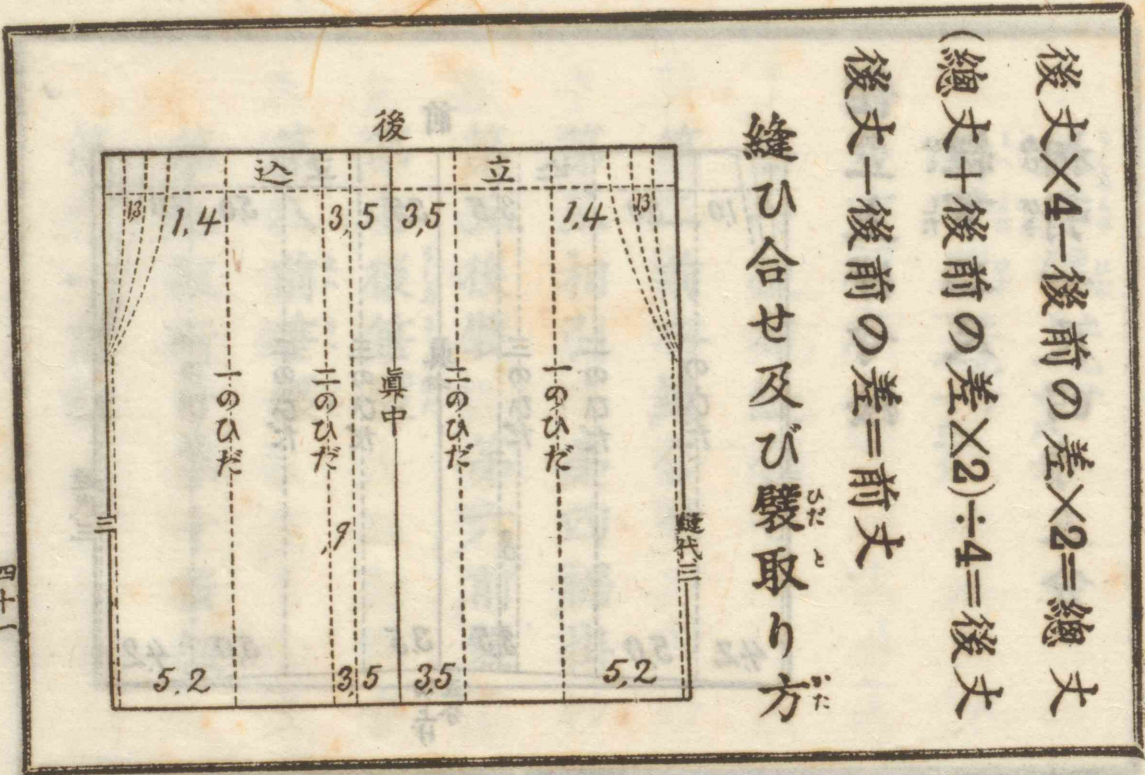 後丈×4−後前の差×2=總丈
(總丈+後前の差×2)÷4=後丈
後丈−後前の差=前丈
縫ひ合せ及び襞取り方
ひだ と かた
後
立
込
1,3
1,4
3,5
3,5
1,4
1,3
一のひだ
二のひだ
眞中
二のひだ
一のひだ
,9
縫代三
三
5.2
3,5
3,5
5,2
四十一